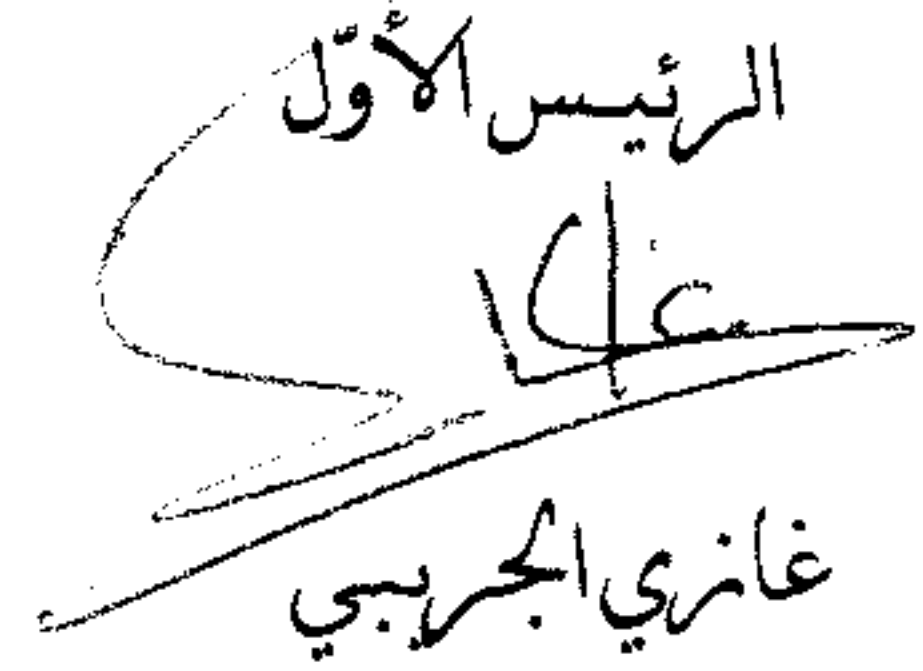 الرئيس الأوّل
غازي الجريبي